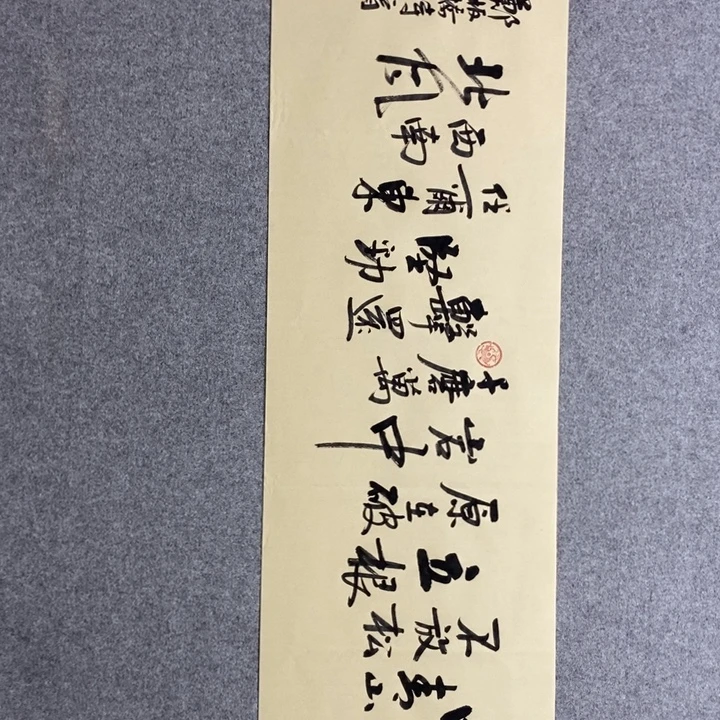 青山
不放松
立根
原在破
岩中
千磨萬
擊還
堅勁
任爾東
西南
北風
鄭板橋詩